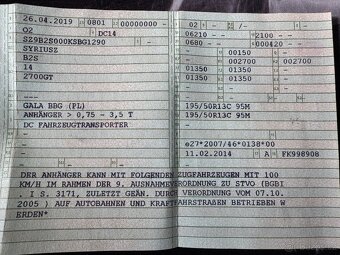 26.04.2019 0801 00000000 -
02 DC14
SZ9B2S000KSBG1290 -
SYRIUSZ
B2S
14
2700GT
-
GALA BBG (PL)
ANHÄNGER > 0,75 - 3,5 T
DC FAHRZEUGTRANSPORTER
-
-
02 - /-
06210 - 2100 -
0680 - 000420 -
- 00150 -
- 002700 002700
01350 01350 -
01350 01350 -
- - -
195/50R13C 95M
195/50R13C 95M
-
e27*2007/46*0138*00
11.02.2014 A FK998908
DER ANHÄNGER KANN MIT FOLGENDEN ZUGFAHRZEUGEN MIT 100
KM/H IM RAHMEN DER 9. AUSNAHMEVERORDNUNG ZU STVO (BGBI
. I S. 3171, ZULETZT GEÄN. DURCH VERORDNUNG VOM 07.10.
2005 ) AUF AUTOBAHNEN UND KRAFTFAHRSTRAßEN BETRIEBEN W
ERDEN*